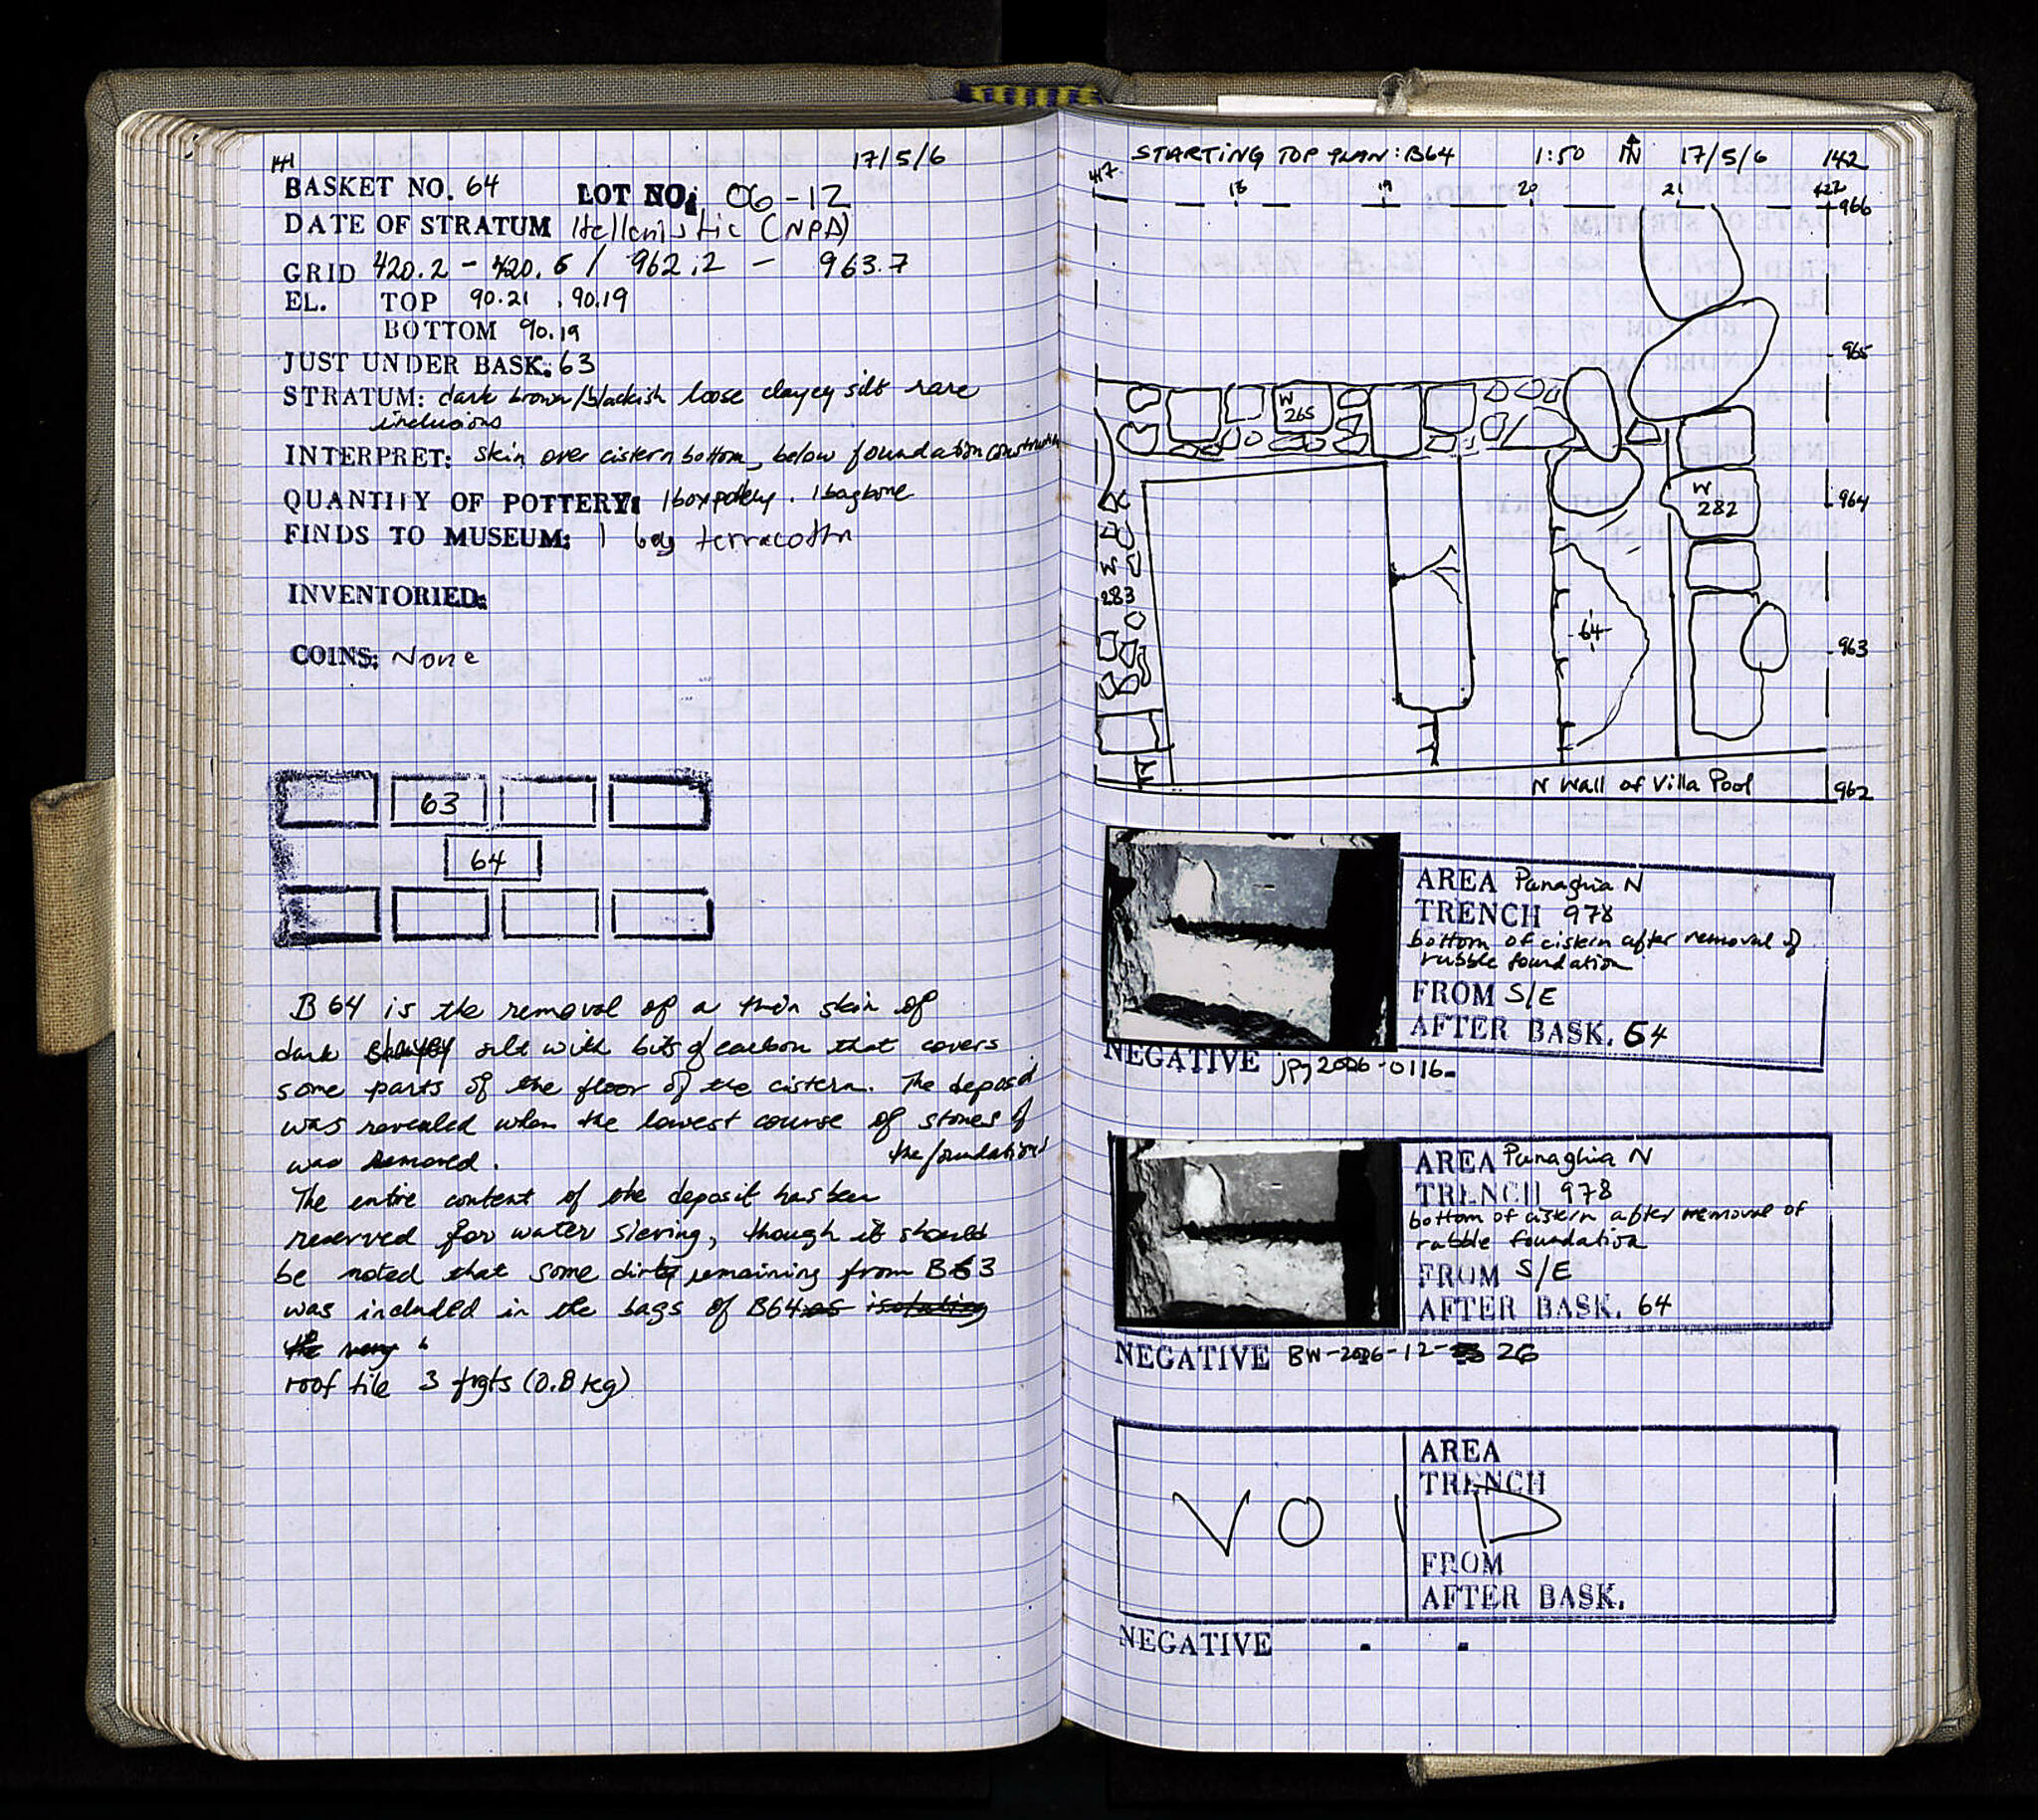 141 17/5/6
BASKET NO. 64 LOT NO: 06-12
DATE OF STRATUM Hellenistic (NPD)
GRID 420.2 - 420.6 / 962.2 - 963.7
EL. TOP 90.21, 90.19
BOTTOM 90.19
JUST UNDER BASK: 63
STRATUM: dark brown/blackish loose clayey silt rare
inclusions
INTERPRET: skin over cistern bottom, below foundation construction
QUANTITY OF POTTERY: 1 box pottery. 1 bag bone
FINDS TO MUSEUM: 1 bag terracotta
INVENTORIED:
COINS: None
63
64
B 64 is the removal of a thin skin of
dark silt with bits of carbon that covers
some parts of the floor of the cistern. The deposit
was revealed when the lowest course of stones of
the foundations
was removed.
The entire content of the deposit has been
reserved for water sieving, though it should
be noted that some dirt remaining from B63
was included in the bags of B64 as isolating
the very
roof tile 3 frgts (0.8 kg)
STARTING TOP PLAN: B64 1:50 N 17/5/6 142
417 18 19 20 21 422
966
965
W
265
W
282
964
W
283
64
963
N Wall of Villa Pool
962
AREA Panaghia N
TRENCH 978
bottom of cistern after removal of
rubble foundation
FROM S/E
AFTER BASK. 64
NEGATIVE jpg2006-0116
AREA Panaghia N
TRENCH 978
bottom of cistern after removal of
rubble foundation
FROM S/E
AFTER BASK. 64
NEGATIVE BW-2006-12- 26
AREA
TRENCH
VOID
FROM
AFTER BASK.
NEGATIVE - -